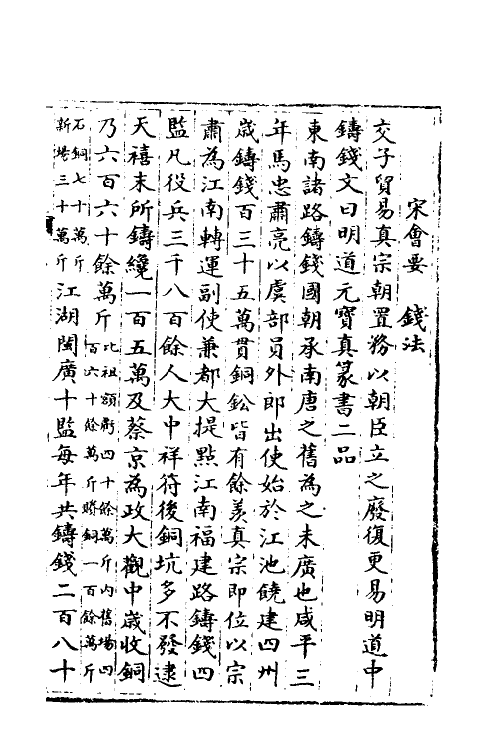 宋會要　錢法
交子貿易真宗朝置務以朝臣立之廢復更易明道中
鑄錢文曰明道元寳真篆書二品
東南諸路鑄錢國朝承南唐之舊為之未廣也咸平三
年馬忠肅亮以虞部員外郎出使始於江池饒建四州
歲鑄錢百三十五萬貫銅鈆皆有餘羡真宗即位以宗
肅為江南轉運副使兼都大提點江南福建路鑄錢四
監凡役兵三千八百餘人大中祥符後銅坑多不發逮
天禧末所鑄纔一百五萬及蔡京為政大觀中歲收銅
乃六百六十餘萬斤比祖額虧四十餘萬斤内舊場四百六十餘萬斤膽銅一百餘萬斤
石銅七十萬斤新場三十萬斤江湖閩廣十監每年共鑄錢二百八十